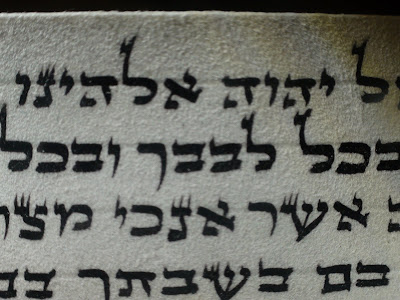 יהוה אלהינו
בכל לבבך ובכל
אשר אנכי מצו
בם בשבתך בב